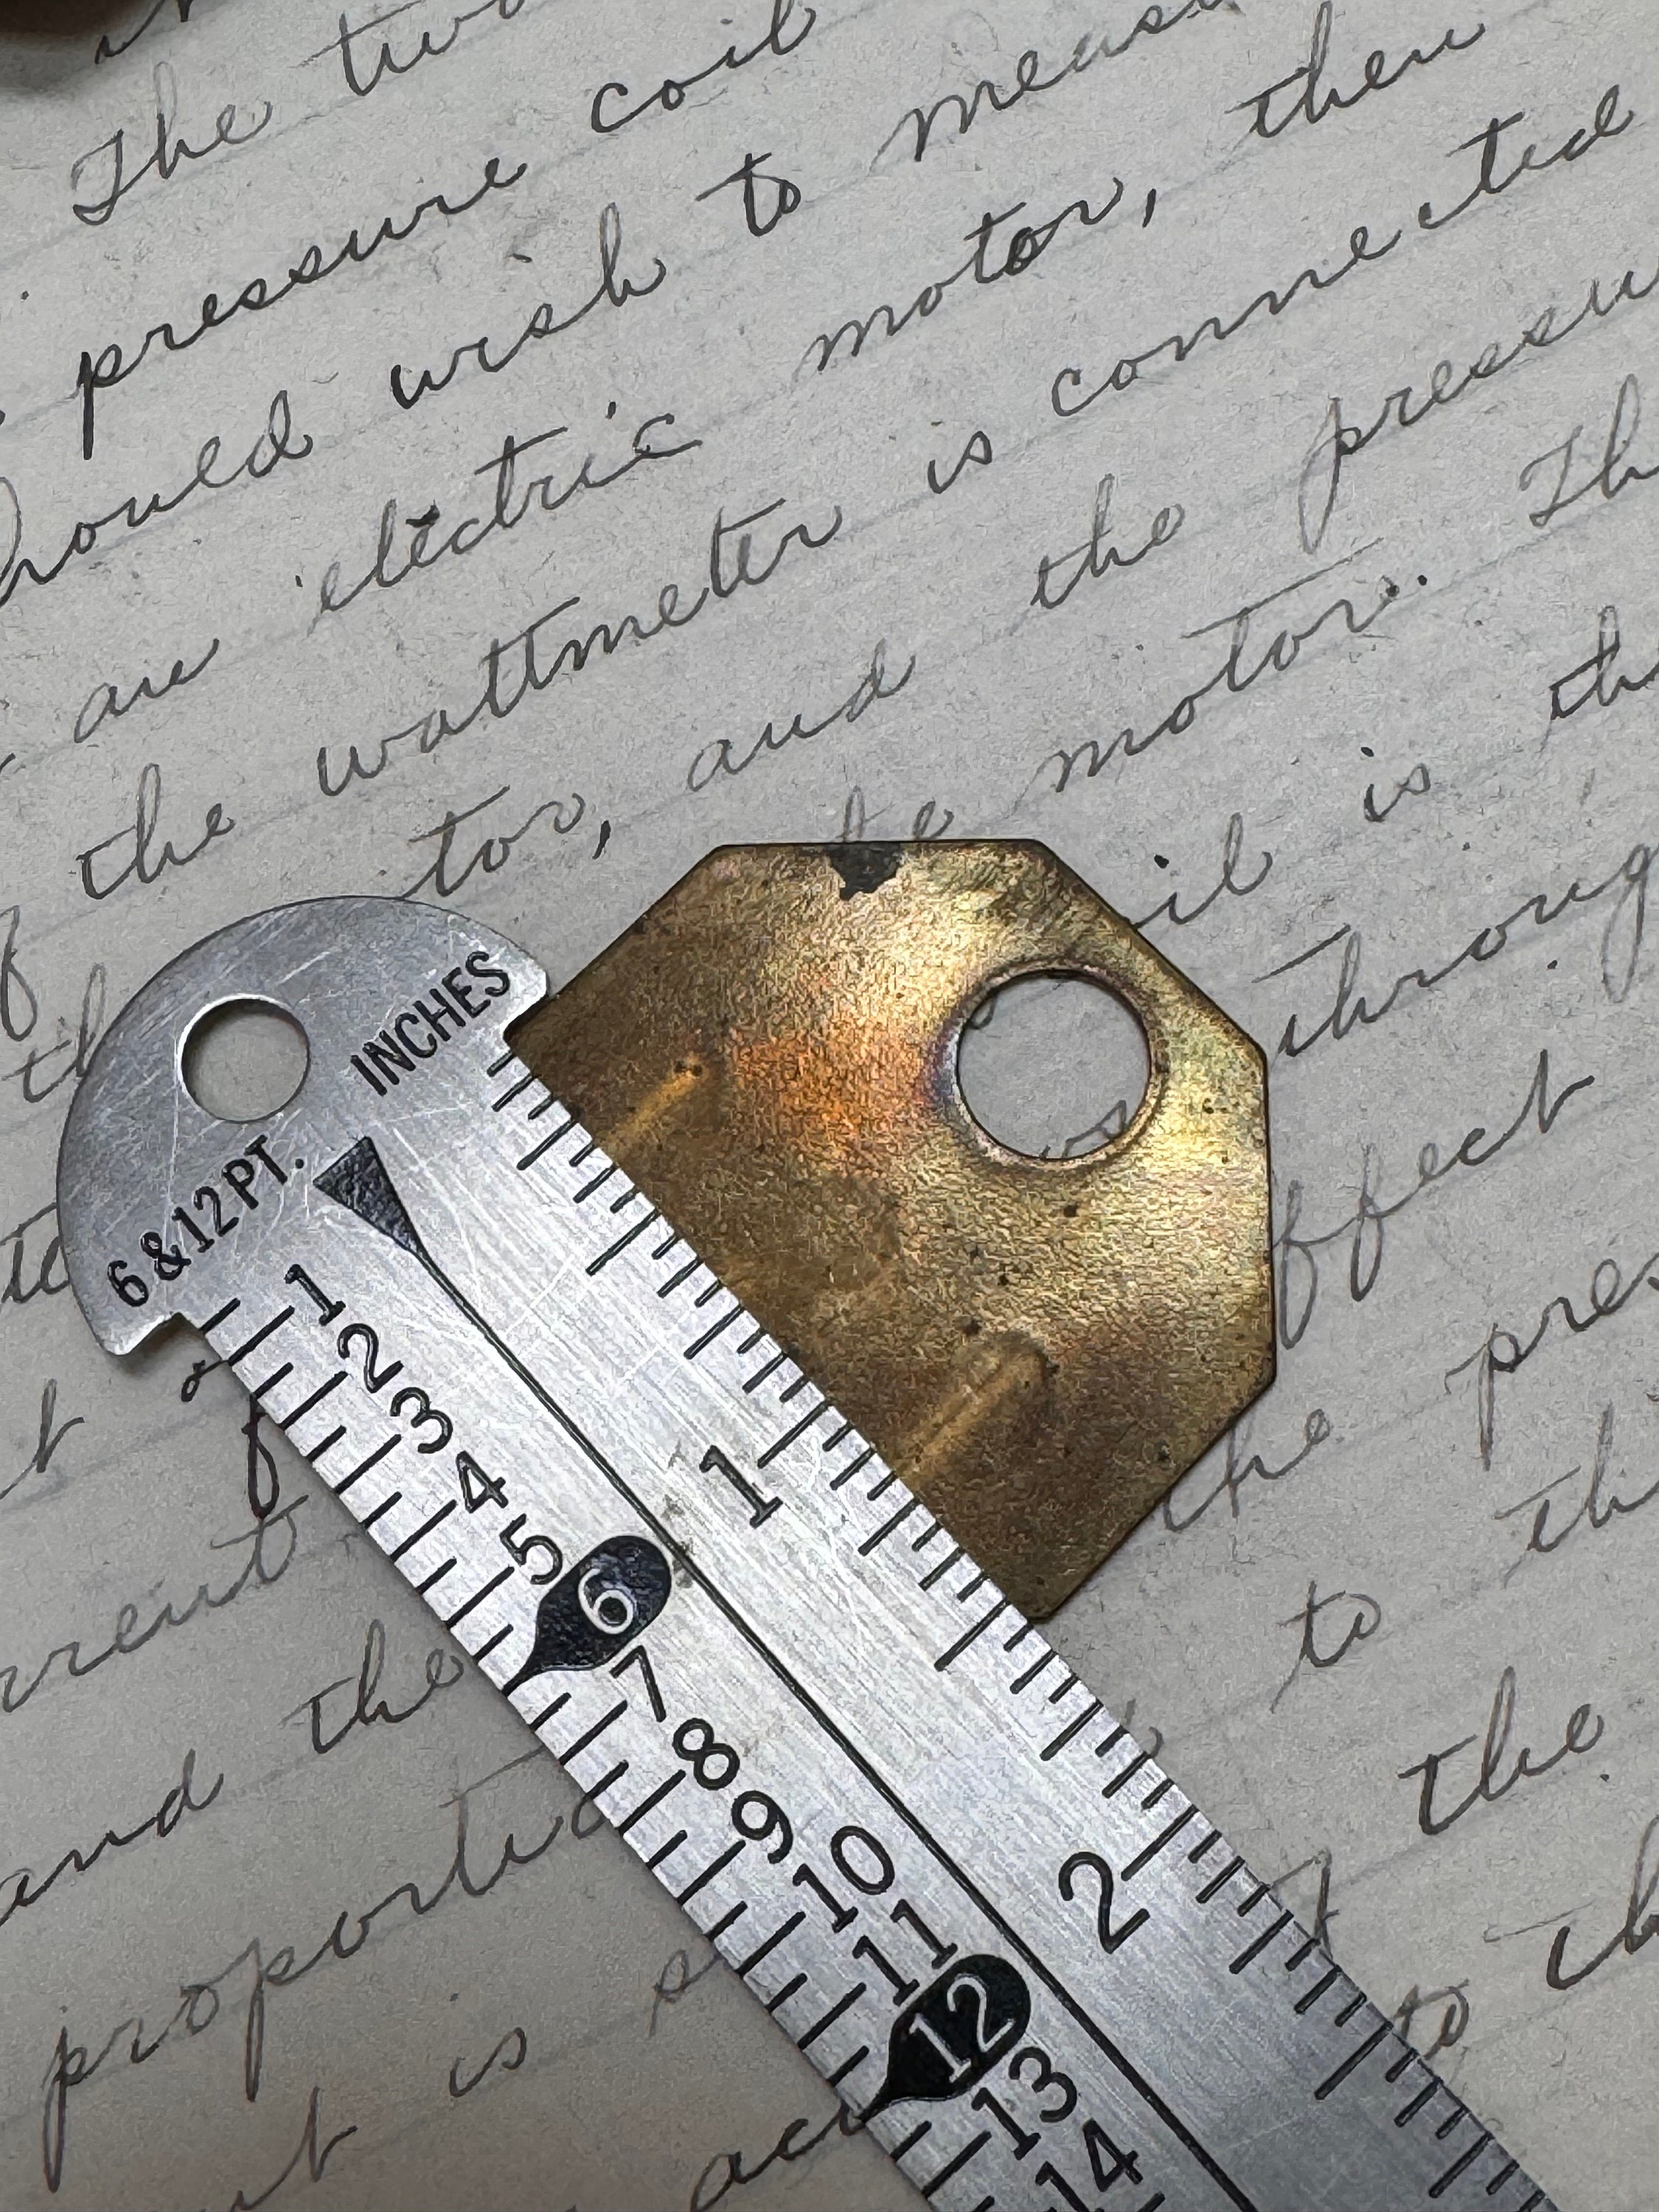 The two
pressure coil
should wish to meas
an electric motor, then
the wattmeter is connected
tor, and the pressu
the motor. Th
il is th
throug
ffect
rrent the pres
and the to th
proportio the
t is s to th
acc
INCHES
6 & 12 PT.
1 2 3 4 5 6 7 8 9 10 11 12 13 14
1 2